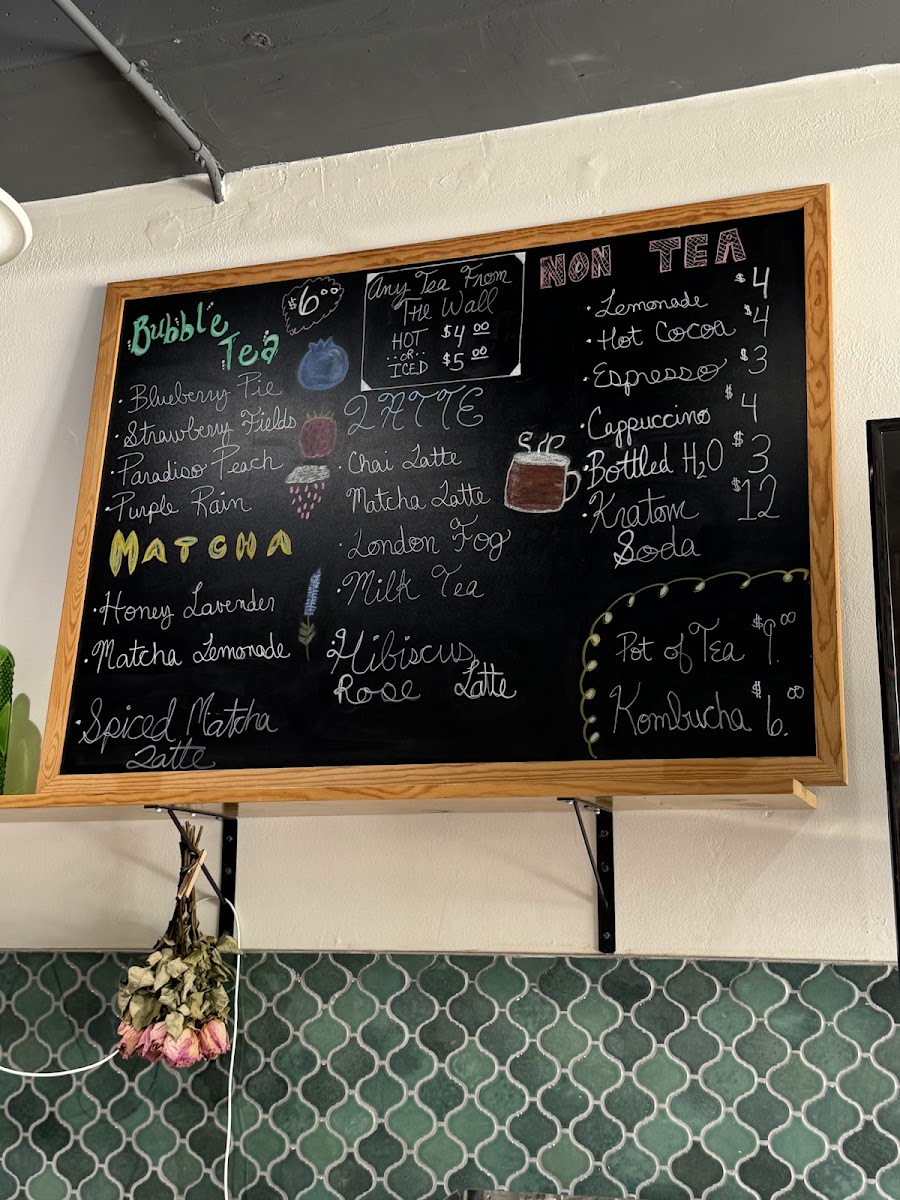 Bubble
Tea
$6.00
• Blueberry Pie
• Strawberry Fields
• Paradiso Peach
• Purple Rain
MATCHA
• Honey Lavender
• Matcha Lemonade
• Spiced Matcha
Latte
Any Tea From
The Wall
HOT $4.00
OR
ICED $5.00
LATTE
• Chai Latte
Matcha Latte
• London Fog
• Milk Tea
• Hibiscus
Rose Latte
NON TEA
• Lemonade $4
• Hot Cocoa $4
• Espresso $3
• Cappuccino $4
• Bottled H2O $3
• Kratom $12
Soda
Pot of Tea $9.00
Kombucha $6.00